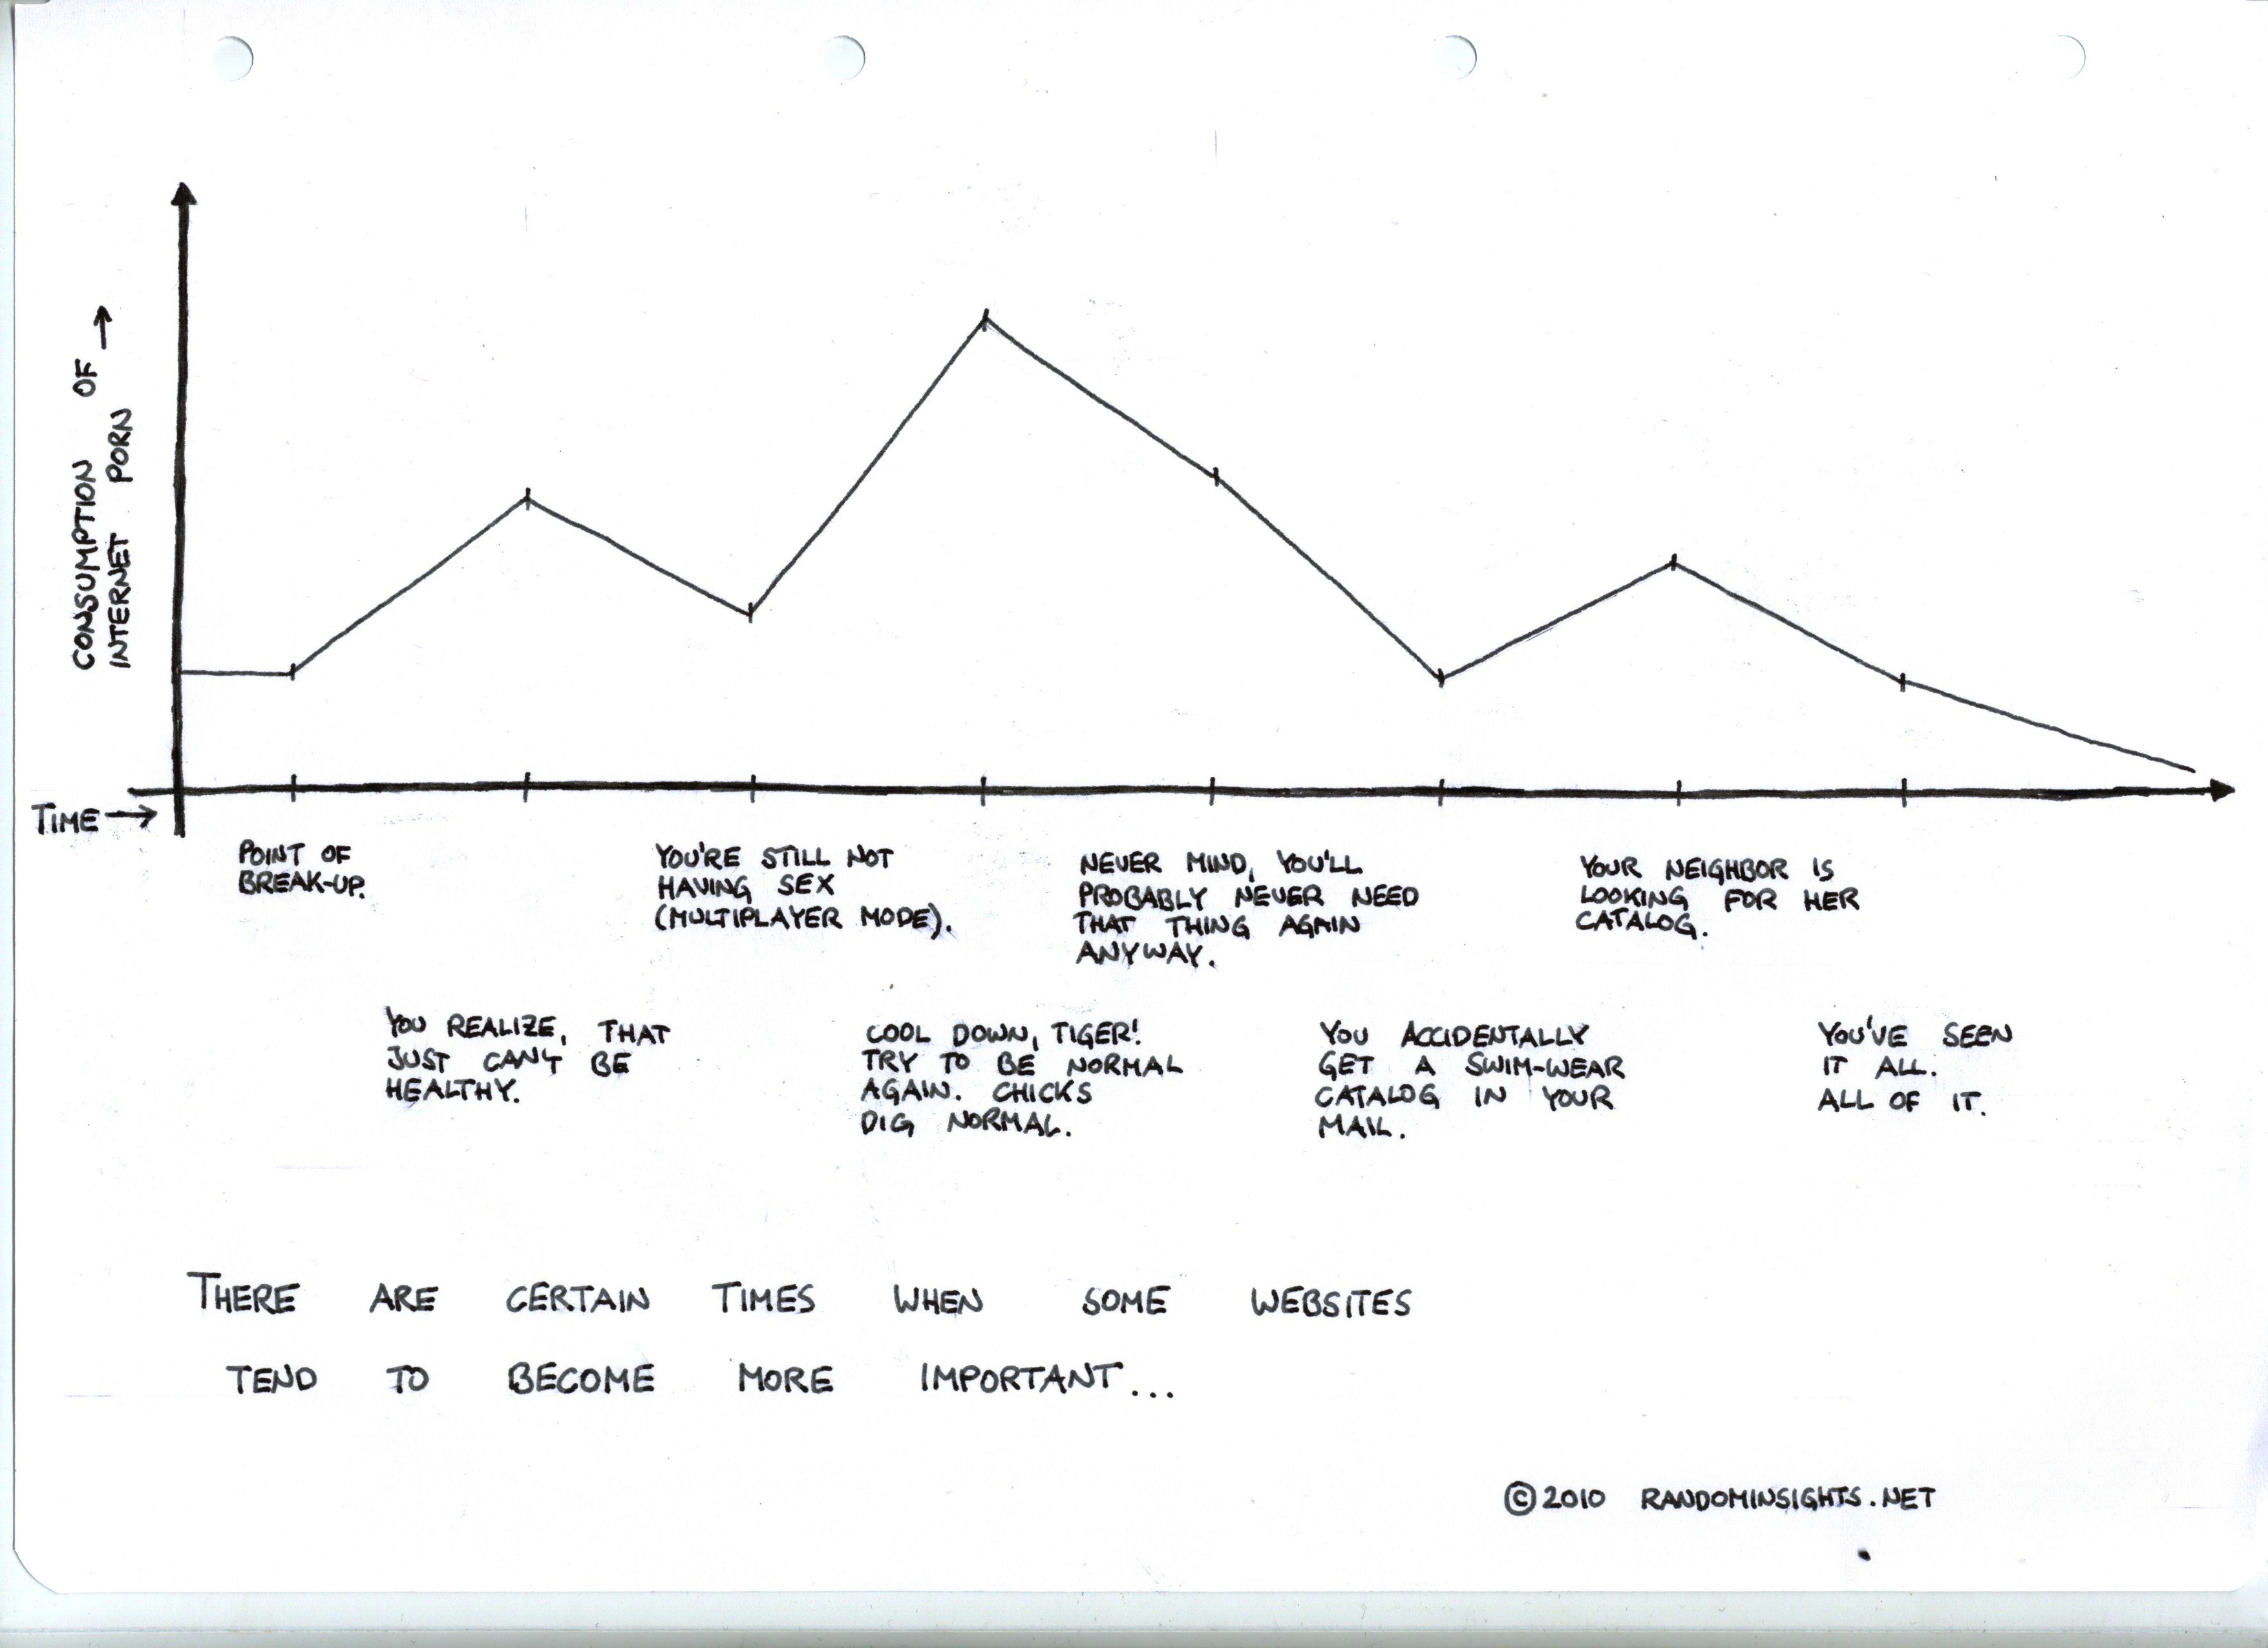 CONSUMPTION OF
INTERNET PORN →
TIME →
POINT OF
BREAK-UP.
YOU REALIZE, THAT
JUST CAN'T BE
HEALTHY.
YOU'RE STILL NOT
HAVING SEX
(MULTIPLAYER MODE).
COOL DOWN, TIGER!
TRY TO BE NORMAL
AGAIN. CHICKS
DIG NORMAL.
NEVER MIND, YOU'LL
PROBABLY NEVER NEED
THAT THING AGAIN
ANYWAY.
YOU ACCIDENTALLY
GET A SWIM-WEAR
CATALOG IN YOUR
MAIL.
YOUR NEIGHBOR IS
LOOKING FOR HER
CATALOG.
YOU'VE SEEN
IT ALL.
ALL OF IT.
THERE ARE CERTAIN TIMES WHEN SOME WEBSITES
TEND TO BECOME MORE IMPORTANT...
©2010 RANDOMINSIGHTS.NET